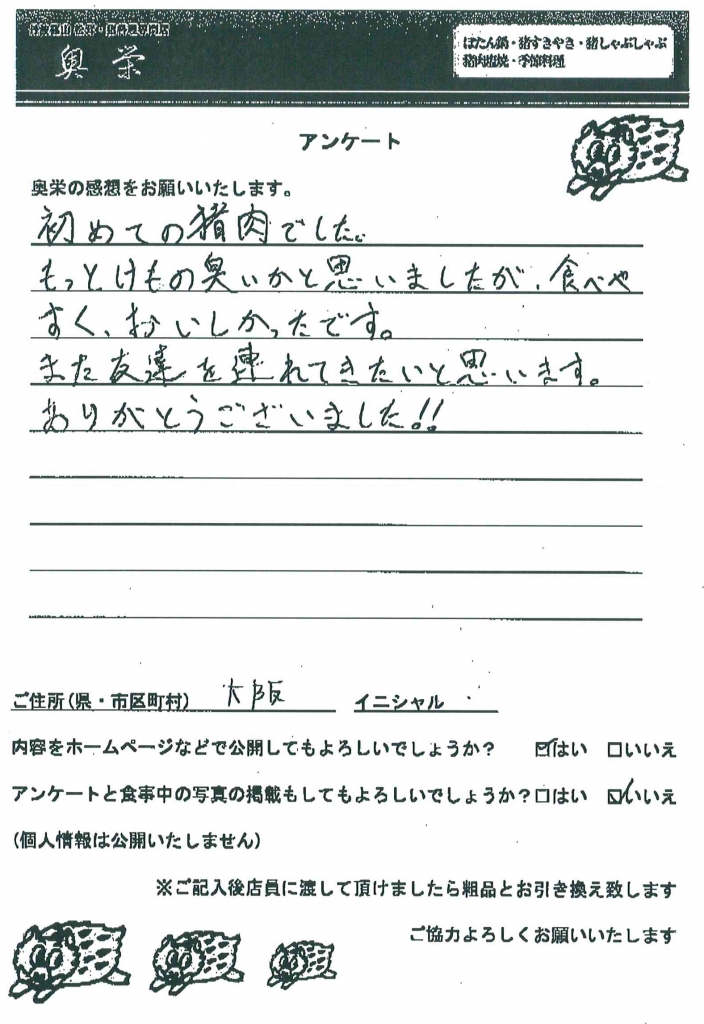 奥栄
ぼたん鍋・猪すきやき・猪しゃぶしゃぶ
猪肉塩焼・季節料理
アンケート
奥栄の感想をお願いいたします。
初めての猪肉でした。
もっとけもの臭いかと思いましたが、食べや
すく、おいしかったです。
また友達を連れてきたいと思います。
ありがとうございました!!
ご住所(県・市区町村) 大阪 イニシャル
内容をホームページなどで公開してもよろしいでしょうか? ☑はい □いいえ
アンケートと食事中の写真の掲載もしてもよろしいでしょうか?□はい ☑いいえ
(個人情報は公開いたしません)
※ご記入後店員に渡して頂けましたら粗品とお引き換え致します
ご協力よろしくお願いいたします